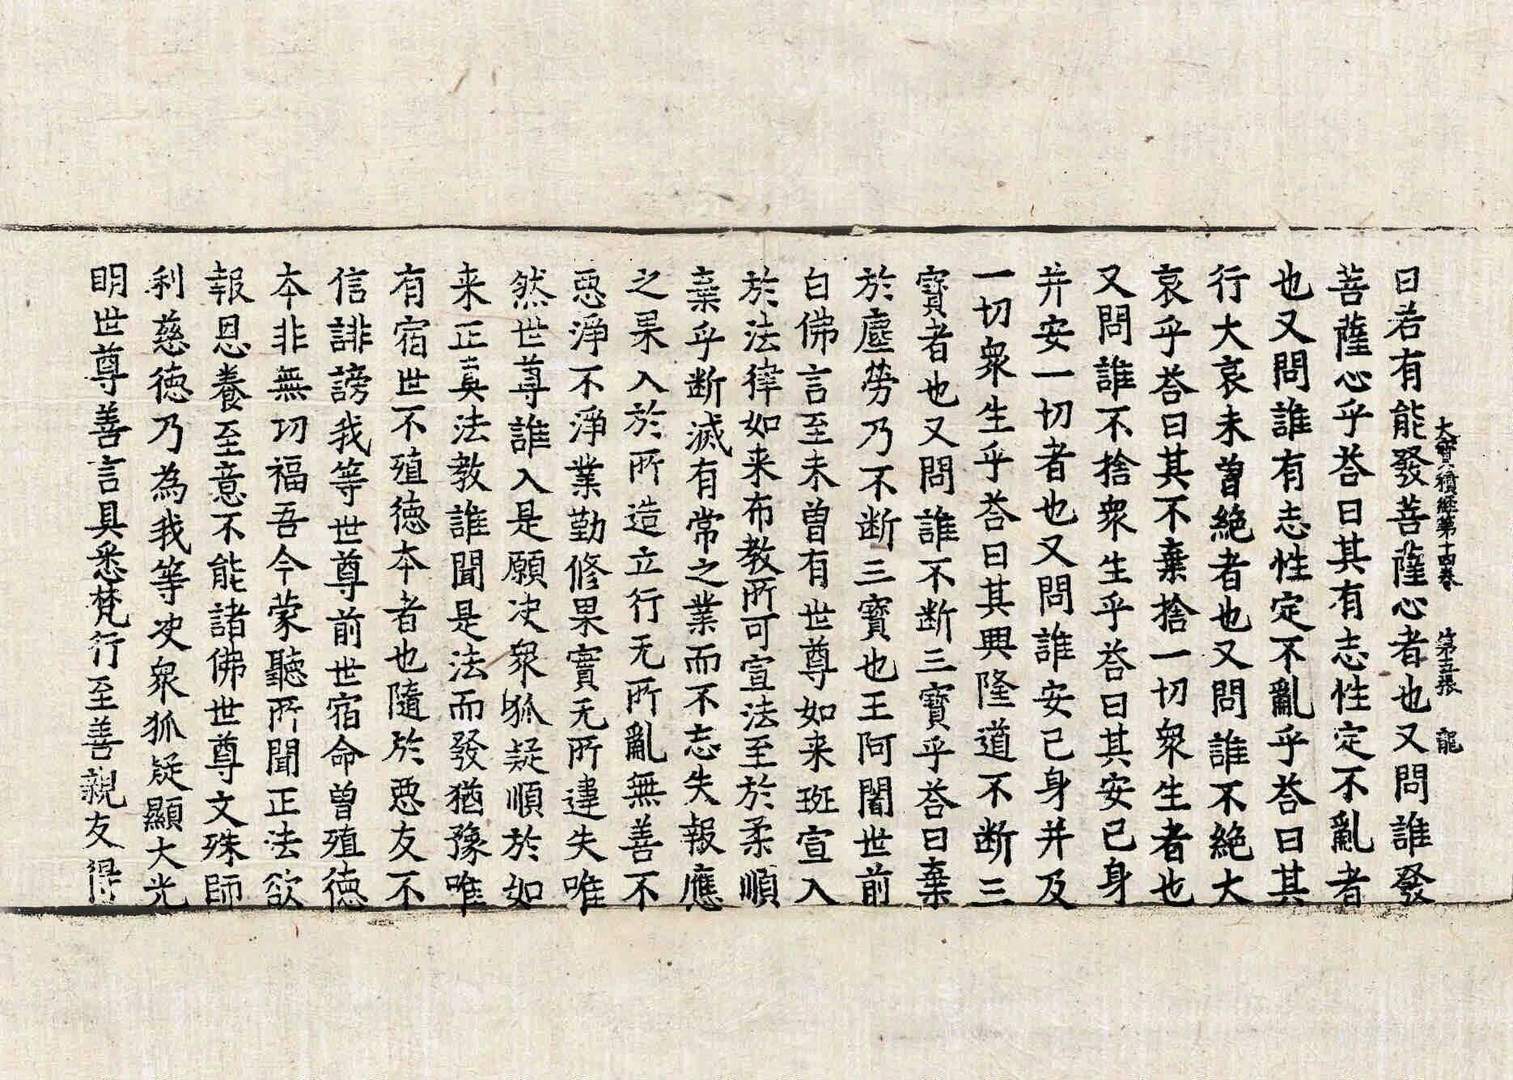 大寶積經第十四卷　第五張　龍
曰若有能發菩薩心者也又問誰發
菩薩心乎荅曰其有志性定不亂者
也又問誰有志性定不亂乎荅曰其
行大哀未曽絶者也又問誰不絶大
哀乎荅曰其不棄捨一切衆生者也
又問誰不捨衆生乎荅曰其安已身
并安一切者也又問誰安已身并及
一切衆生乎荅曰其興隆道不断三
寶者也又問誰不断三寶乎荅曰棄
於塵勞乃不断三寶也王阿闍世前
白佛言至未曽有世尊如来班宣入
於法律如来布教所可宣法至於柔順
棄乎断滅有常之業而不忘失報應
之果入於所造立行无所亂無善不
惡淨不淨業勤修果實无所違失唯
然世尊誰入是願决衆狐疑順於如
来正真法教誰聞是法而發猶豫唯
有宿世不殖徳本者也隨於惡友不
信誹謗我等世尊前世宿命曽殖徳
本非無功福吾今蒙聽所聞正法欲
報恩養至意不能諸佛世尊文殊師
利慈徳乃為我等决衆狐疑顯大光
明世尊善言具悉梵行至善親友得